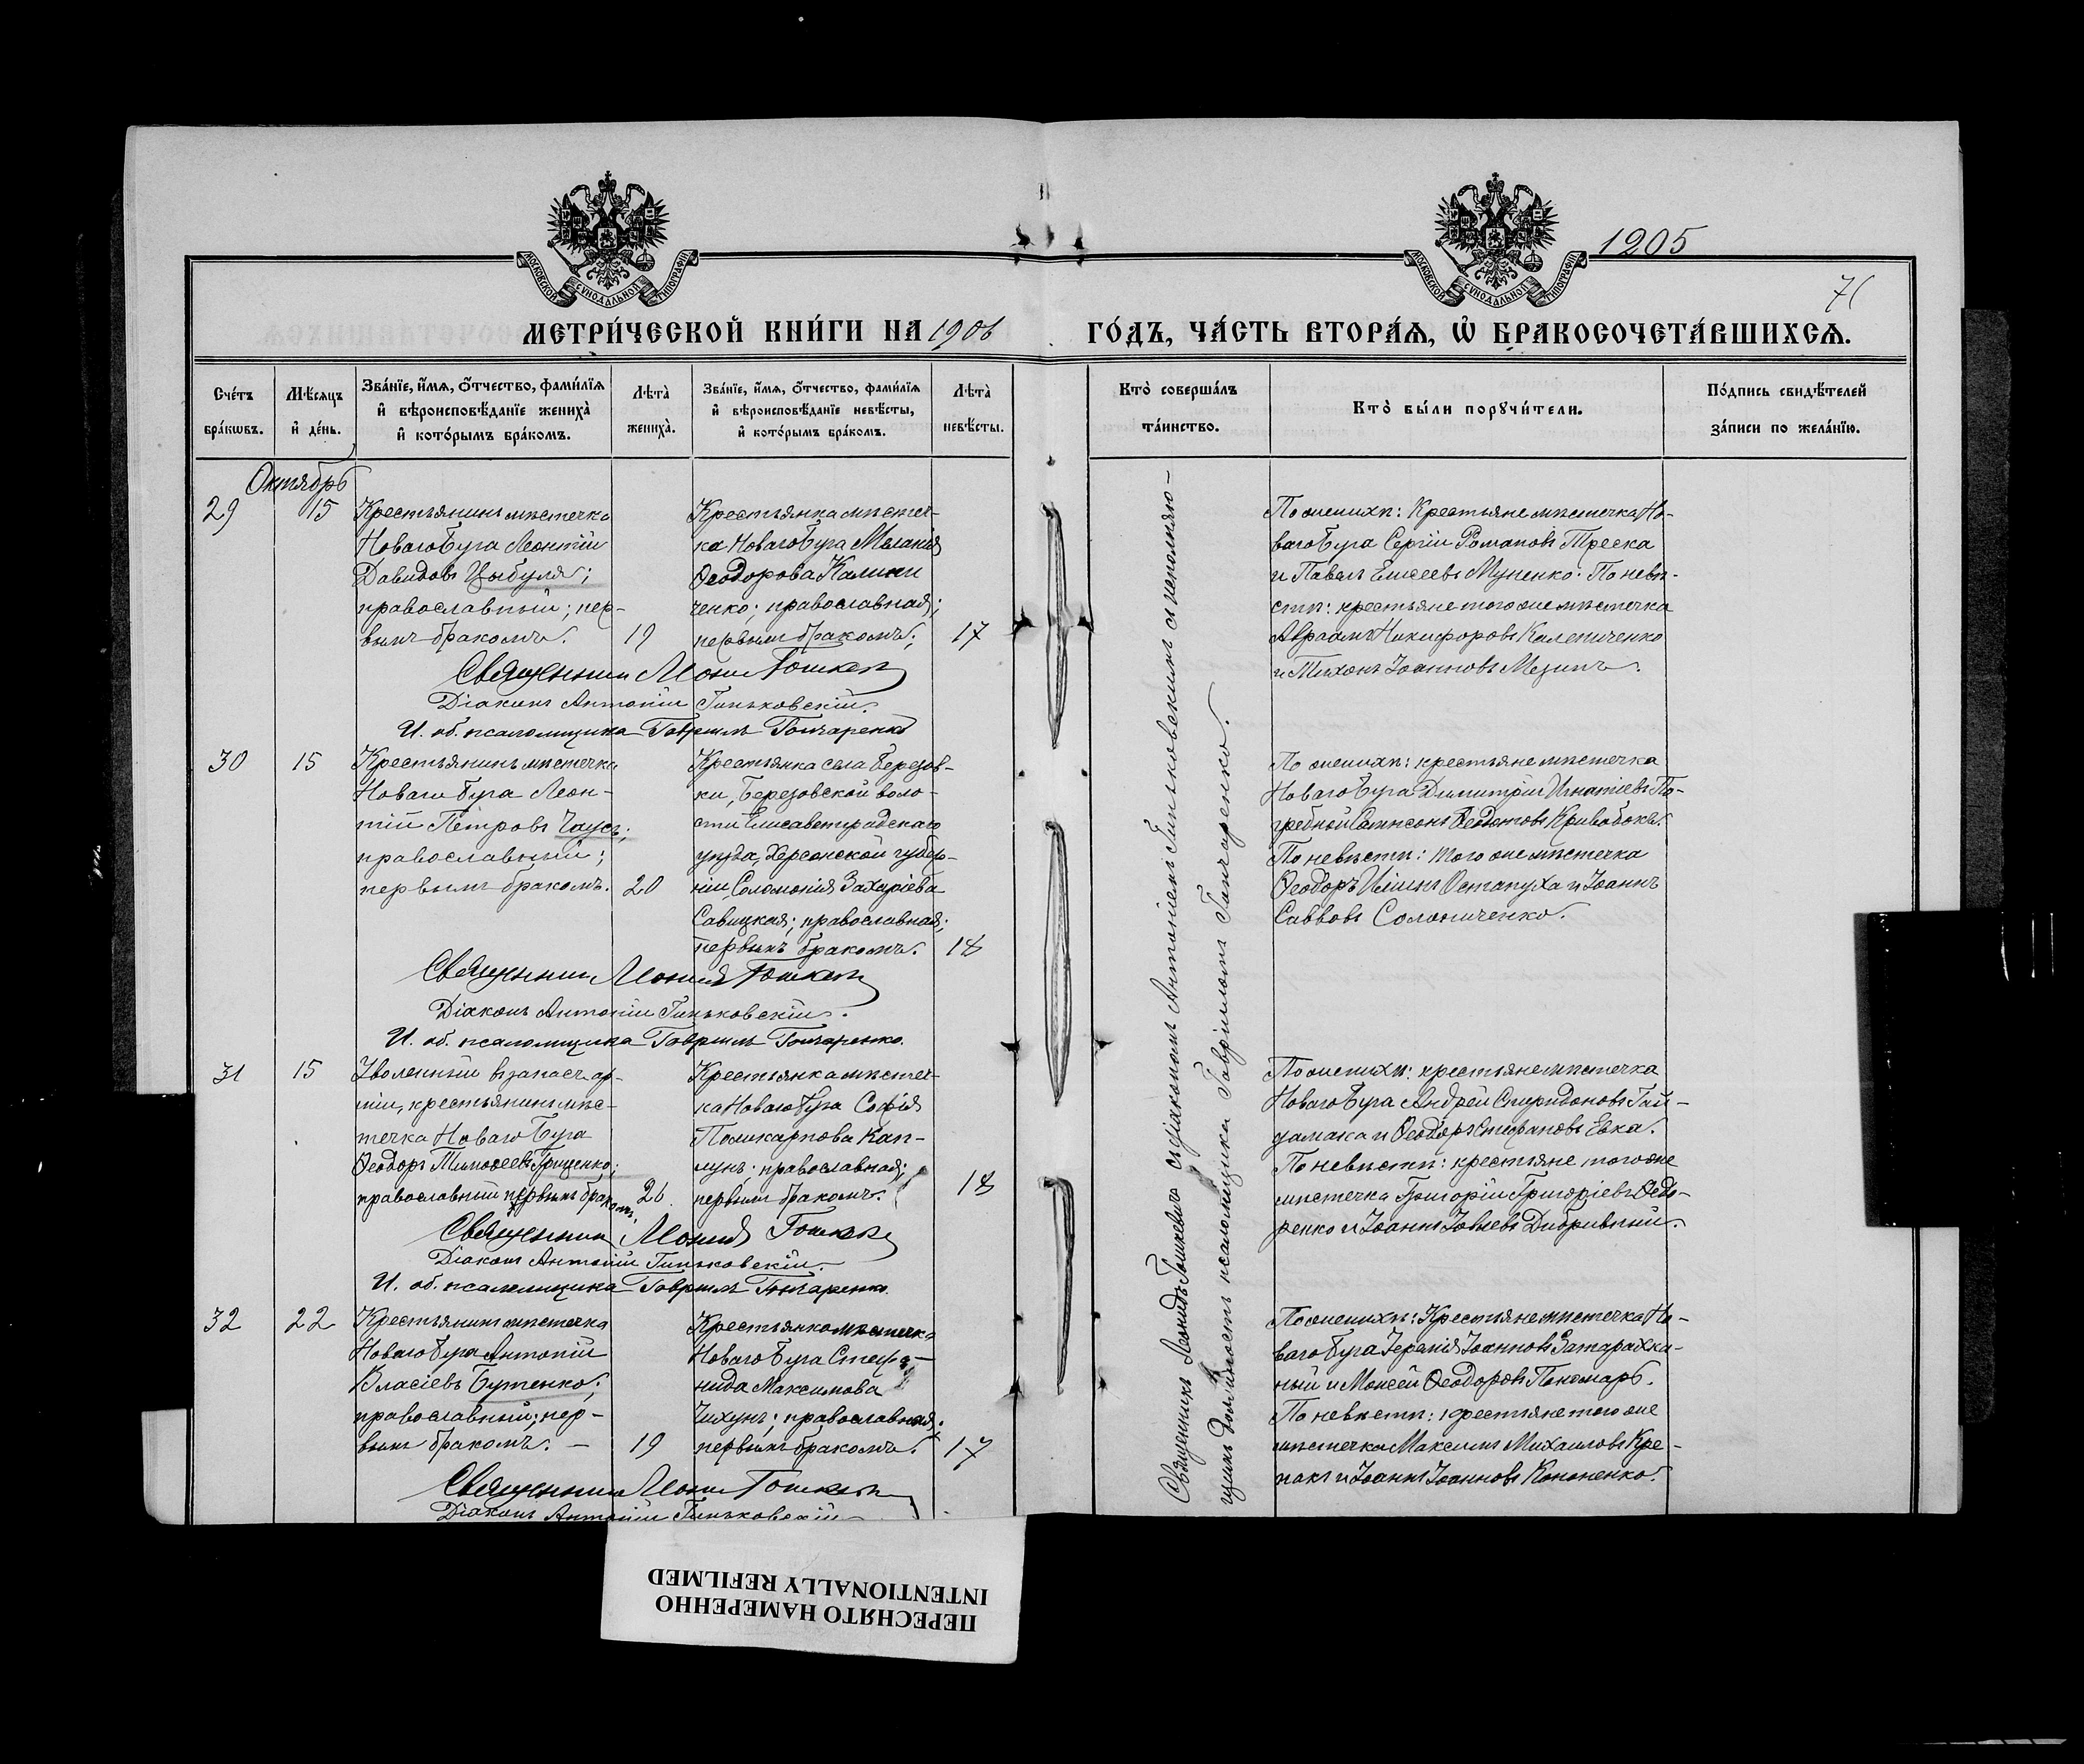 1205
71
МОСКОВСКОЙ СУНОДАЛЬНОЙ ТИПОГРАФІИ
МОСКОВСКОЙ СУНОДАЛЬНОЙ ТИПОГРАФІИ
МЕТРИ́ЧЕСКОЙ КНИ́ГИ НА 1906 ГО́ДЪ, ЧА́СТЬ ВТОРА́Ѧ, Ѡ БРАКОСОЧЕТА́ВШИХСѦ.
Сче́тъ бра́кѡвъ.
Мѣ́сяцъ и҆ де́нь.
Зва́нїе, и҆́мѧ, ѻ҆́тчество, фами́лїѧ и҆ вѣроисповѣ́данїе жениха̀ и҆ кото́рымъ бра́комъ.
Лѣ́та̀ жениха̀.
Зва́нїе, и҆́мѧ, ѻ҆́тчество, фами́лїѧ и҆ вѣроисповѣ́данїе невѣ́сты, и҆ кото́рымъ бра́комъ.
Лѣ́та̀ невѣ́сты.
Кто̀ соверша́лъ та́инство.
Кто̀ бы́ли порꙋчи́тели.
По́дпись свидѣ́телей за́писи по жела́нїю.
Октябрь
29
15
Крестьянинъ мѣстечка
Новаго Буга Леонтій
Давидовъ Цыбуля;
православный; пер-
вымъ бракомъ.
19
Крестьянка мѣстеч-
ка Новаго Буга Меланія
Ѳеодорова Калини
ченко; православная;
первымъ бракомъ;
17
По женихѣ: Крестьяне мѣстечка Но-
ваго Буга Сергій Романовъ Треска
и Павелъ Елисеевъ Муненко. По невѣ-
стѣ: крестьяне того же мѣстечка
Авраамъ Никифоровъ Калениченко
и Тихонъ Іоанновъ Мезинъ.
Священникъ Леонидъ Гошкевичъ
Діаконъ Антоній Гиньковскій.
И. об. псаломщика Гавріилъ Гончаренко
30
15
Крестьянинъ мѣстечка
Новаго Буга Леон-
тій Петровъ Чаусъ;
православный;
первымъ бракомъ.
20
Крестьянка села Березов-
ки, Березовской воло-
сти Елисаветградскаго
уѣзда, Херсонской губер-
ніи, Соломонія Захаріева
Савицкая; православная;
первымъ бракомъ.
18
По женихѣ: крестьяне мѣстечка
Новаго Буга Димитрій Игнатіевъ По-
гребной Сампсонъ Ѳеодотовъ Кривобокъ.
По невѣстѣ: того же мѣстечка
Ѳеодоръ Иліинъ Остапуха и Іоаннъ
Савовъ Солониченко.
Священникъ Леонидъ Гошкевичъ
Діаконъ Антоній Гиньковскій.
И. об. псаломщика Гавріилъ Гончаренко.
31
15
Уволенный въ запасъ ар-
міи, крестьянинъ мѣс-
течка Новаго Буга
Ѳеодоръ Тимоѳеевъ Гриценко;
православный первымъ бракомъ.
26
Крестьянка мѣстеч-
ка Новаго Буга Софія
Поликарпова Кап-
лунъ; православная;
первымъ бракомъ.
18
По женихѣ: крестьяне мѣстечка
Новаго Буга Андрей Спиридоновъ Гай-
дамака и Ѳеодоръ Стефановъ Евка.
По невѣстѣ: крестьяне того же
мѣстечка Григорій Григоріевъ Ѳедо-
ренко и Іоаннъ Іовлевъ Дибривный.
Священникъ Леонидъ Гошкевичъ
Діаконъ Антоній Гиньковскій.
И. об. псаломщика Гавріилъ Гончаренко.
32
22
Крестьянинъ мѣстечка
Новаго Буга Антоній
Власіевъ Бутенко;
православный; пер-
вымъ бракомъ. —
19
Крестьянка мѣстечка
Новаго Буга Стефа-
нида Максимова
Чихунъ; православная;
первымъ бракомъ.
17
По женихѣ: Крестьяне мѣстечка Но-
ваго Буга Іеремія Іоанновъ Затарахка-
ный и Моисей Ѳеодоровъ Пономарь.
По невѣстѣ: крестьяне того же
мѣстечка Максимъ Михаиловъ Кре-
пакъ и Іоаннъ Іоанновъ Кононенко.
Священникъ Леонидъ Гошкевичъ
Діаконъ Антоній Гиньковскій
Священникъ Леонидъ Гошкевичъ съ діакономъ Антоніемъ Гиньковскимъ и исполняю-
щимъ должность псаломщика Гавріиломъ Гончаренко.
ПЕРЕСНЯТО НАМЕРЕННО
INTENTIONALLY REFILMED